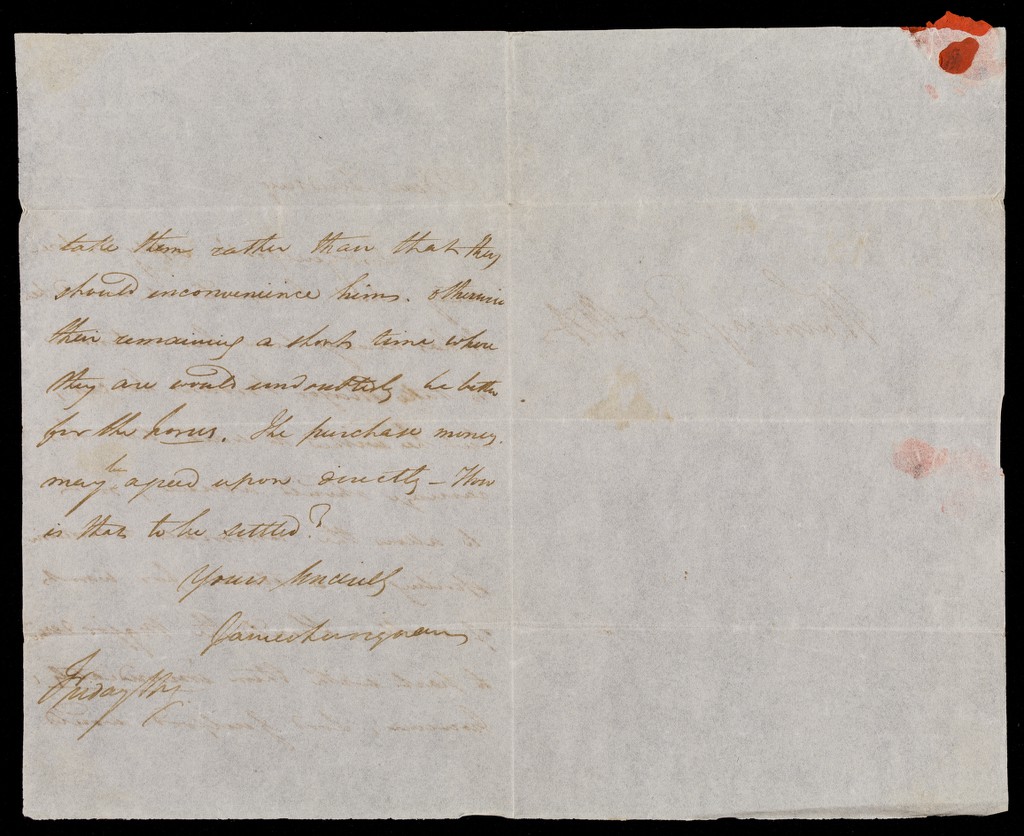 take them rather than that they
should inconvenience him. otherwise
their remaining a short time where
they are would undoubtedly be better
for the horses. The purchase money.
may be agreed upon directly – How
is that to be settled?
Yours sincerely
James
Friday